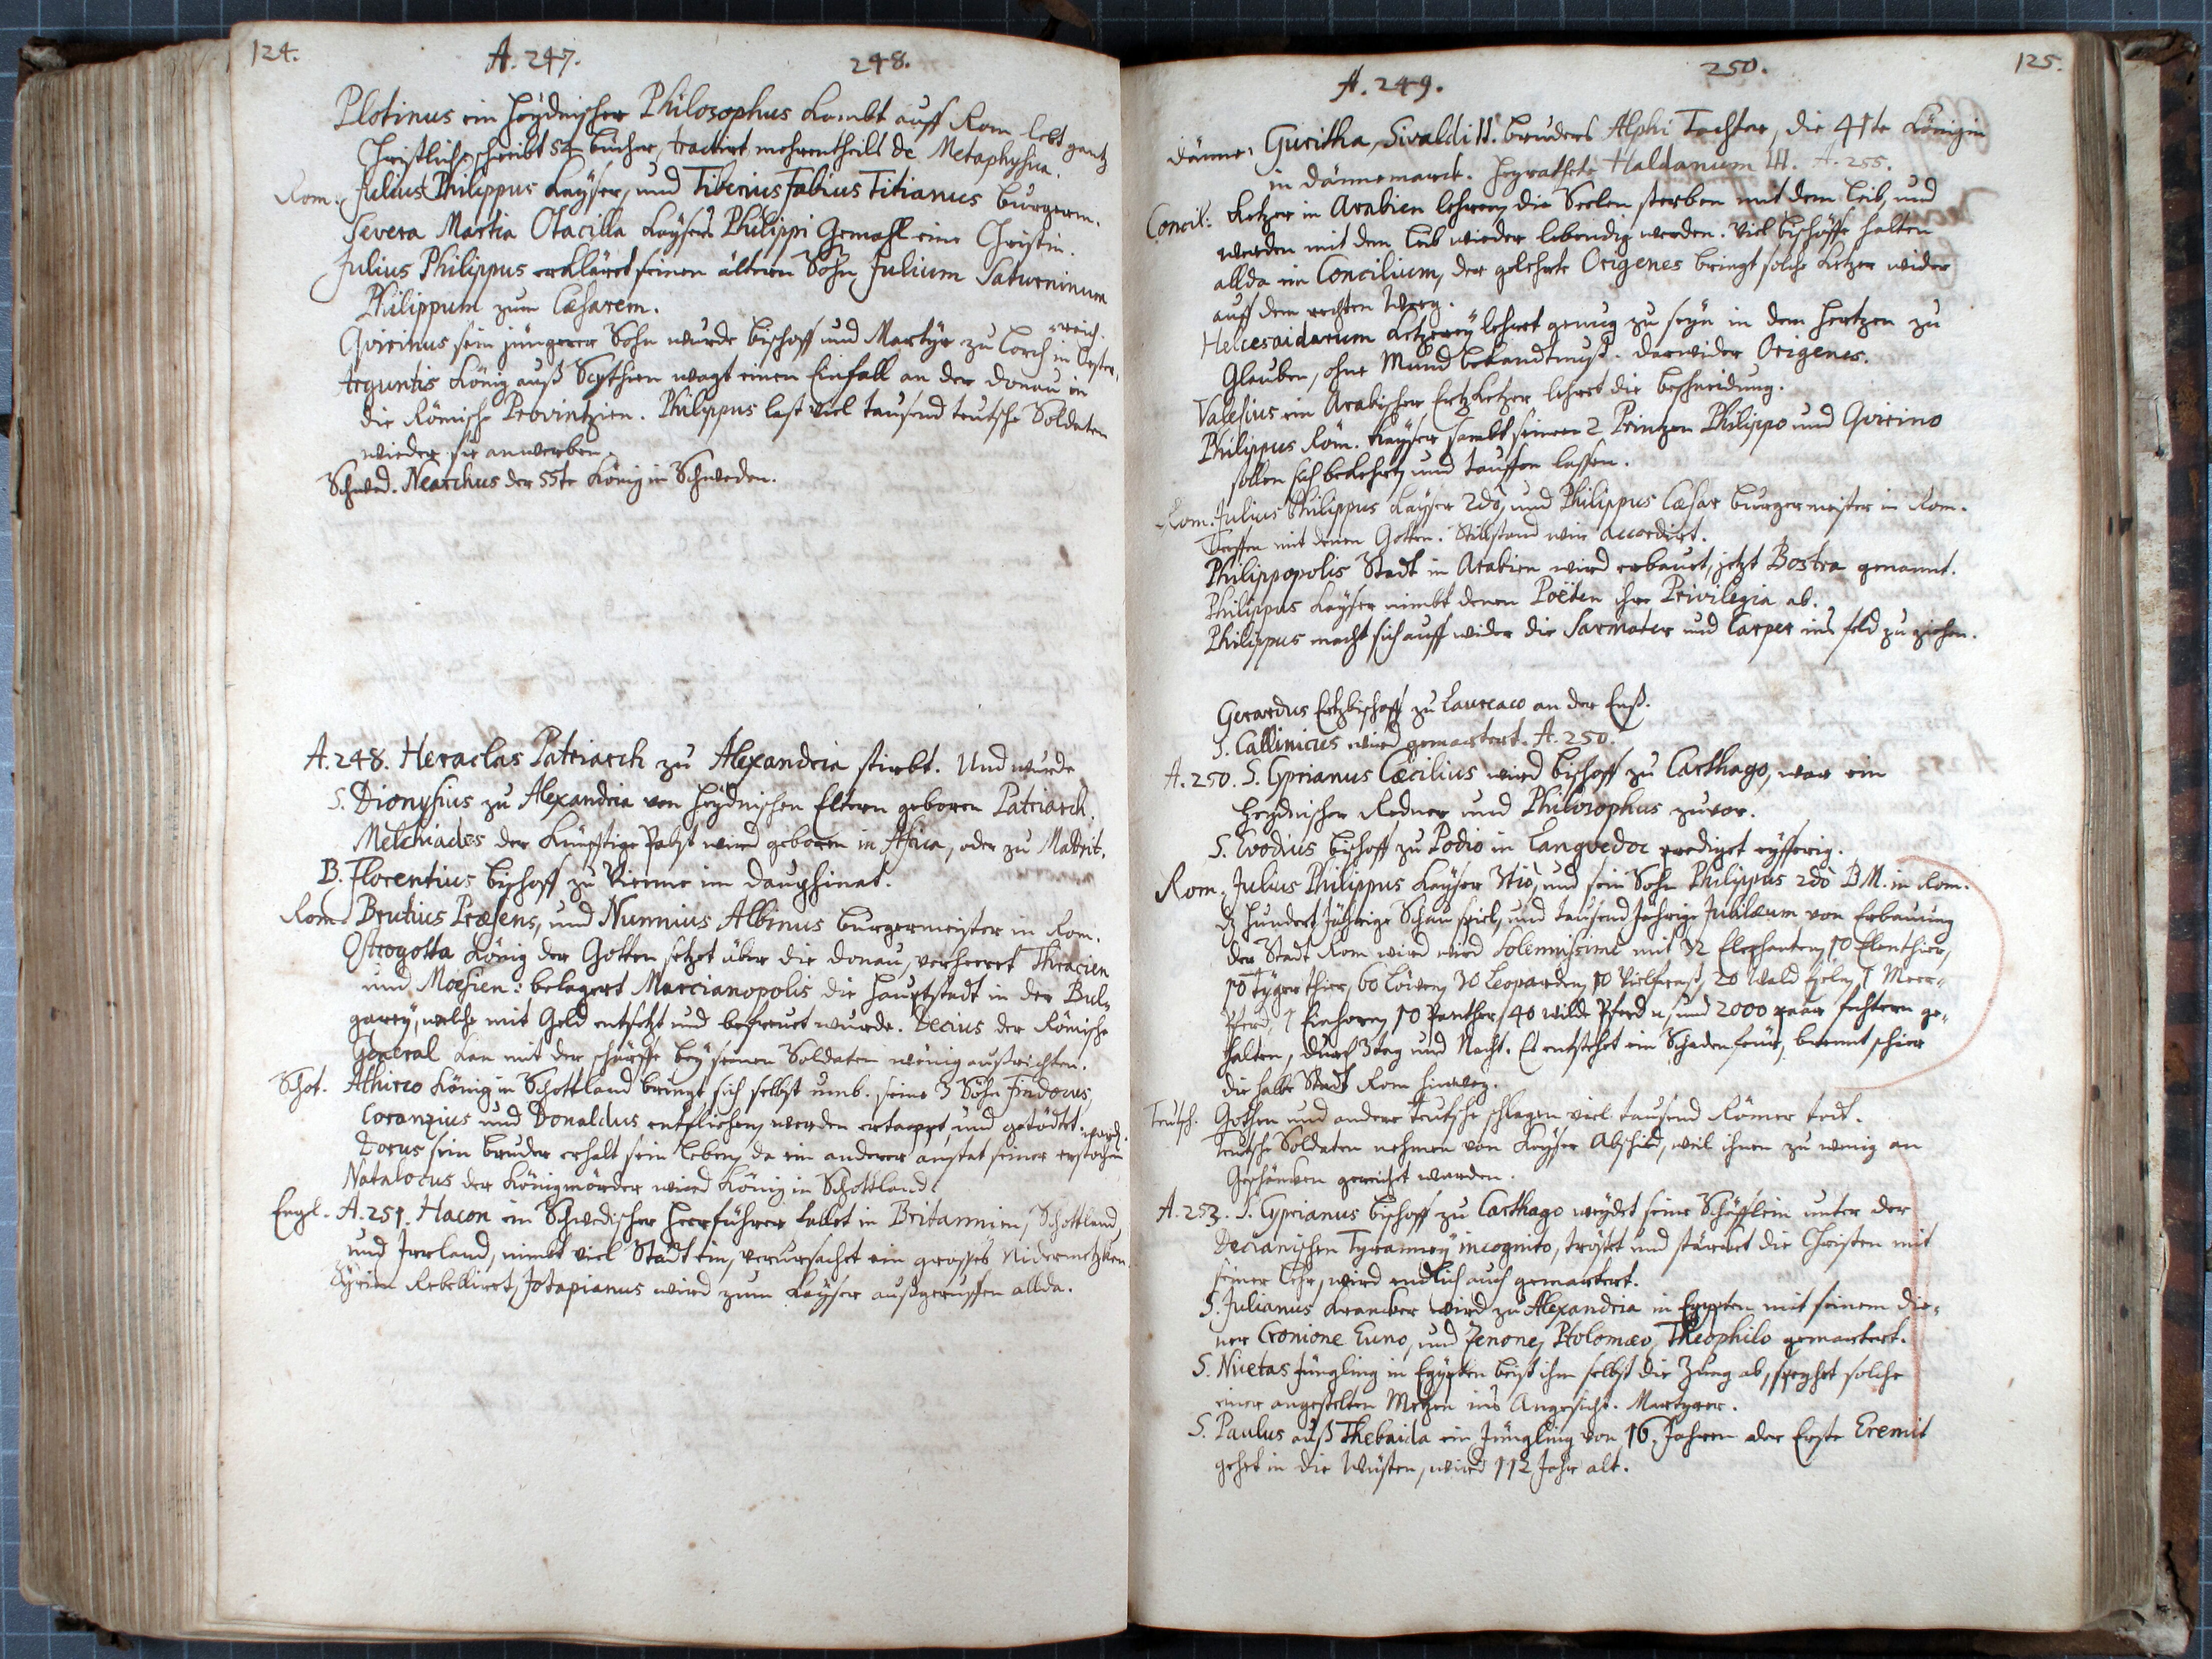 124. A. 247. 248.
Plotinus ein Heydnischer Philosophus kombt auff Rom lebt gantz
Christlich, schreibt 54 bücher, tractirt mehrentheils de Metaphysica.
Rom. Julius Philippus Kayser, und Tiberius Fabius Titianus burgerm.
Severa Martia Otacilla Kaysers Philippi Gemahl eine Christin.
Julius Philippus erkläret seinen ältern Sohn Julium Saturninum
Philippum zum Cæsarem.
Qvirinus sein jüngerer Sohn wurde bischoff und Martyr zu Lorch in Oester-
reich.
Arguntis König auß Scythien wagt einen Einfall an der Donau in
die Römische Provintzien. Philippus last viel tausend teutsche Soldaten
wieder sie anwerben.
Schwed. Nearchus der 55te König in Schweden.
A. 248. Heraclas Patriarch zu Alexandria stirbt. Und wurde
S. Dionysius zu Alexandria von Heydnischen Eltern geboren Patriarch.
Melchiades der künfftige Pabst wird geboren in Africa, oder zu Madrit.
B. Florentius bischoff zu Vienne im Dauphinat.
Rom. Brutius Præsens, und Nunnius Albinus burgermeister in Rom.
Ostrogotta König der Gothen setzet über die Donau, verheeret Thracien
und Moesien: belagert Marcianopolis die Hauptstadt in der Bul-
garey, welche mit Geld entsetzt und befreuet wurde. Decius der Römische
General kan mit der schärffe bey seinen Soldaten wenig außrichten.
Schot. Athirco König in Schottland bringt sich selbst umb. seine 3 Söhn Findocus,
Carantius und Donaldus entfliehen, werden ertappt, und getödtet.
Dorus sein bruder erhalt sein Leben, da ein anderer anstat seiner erstochen
Natalocus der Königmörder wird König in Schottland.
Engl. A. 251. Hacon ein Schwedischer Heerführer fallet in Britannien, Schottland,
und Irrland, nimbt viel Städt ein, verursachet ein grosses Nidermetzlen.
Syrien Rebelliret, Jotapianus wird zum Kayser außgeruffen allda.
A. 249. 250. 125.
Dänne. Guritha, Sivaldi II. bruders Alphi Tochter, die 41te Königin
in Dännemarck. Heyrathete Haldanum III. A. 255.
Concil: Ketzer in Arabien lehren, die Seelen sterben mit dem Leib, und
werden mit dem Leib wieder lebendig werden. Viel bischöffe halten
allda ein Concilium, der gelehrte Origenes bringt solche Ketzer wider
auff den rechten Weeg.
Helcesaidarum Ketzerey lehret genug zu seyn in dem Hertzen zu
Glauben, ohne Mund bekandtnuß. darwider Origenes.
Valesius ein Arabischer ErtzKetzer lehret die beschneidung.
Philippus Röm. Kayser sambt seinen 2 Printzen Philippo und Qvirino
sollen sich bekehret, und tauffen lassen.
Rom. Julius Philippus Kayser 2dò, und Philippus Cæsar burgermeister in Rom.
Treffen mit denen Gothen. Stillstand wird accordirt.
Philippopolis Stadt in Arabien wird erbauet, jetzt Bostra genannt.
Philippus Kayser nimbt denen Poëten ihre Privilegia ab.
Philippus macht sich auff wider die Sarmater und Carper ins feld zu ziehen.
Gerardus Ertzbischoff zu Laureaco an der Enß.
S. Callinicus wird gemartert. A. 250.
A. 250. S. Cyprianus Cæcilius wird bischoff zu Carthago, war ein
Heydnischer Redner und Philosophus zuvor.
S. Evodius bischoff zu Podio in Langvedoc prediget eyfferig.
Rom. Julius Philippus Kayser 3tiò, und sein Sohn Philippus 2dò BM. in Rom.
dz hundert Jährige Schau spiel, und tausend Jährige Jubilæum von Erbauung
der Stadt Rom wird wird solennissimè mit 32 Elephanten, 10 Elenthier,
10 Tÿger thier, 60 Löwen, 30 Leoparden, 10 Vielfraß, 20 Wald Esel, 1 Meer-
Pferd, 1 Einhorn, 10 Panther, 40 wilde Pferd, und 2000 paar fechtern ge-
halten, durch 3 tag und Nacht. Es entstehet ein Schadenfeur, brennt schier
die halbe Stadt Rom hinweg.
Teutsch. Gothen und andere teutsche schlagen viel tausend Römer todt.
Teutsche Soldaten nehmen von Kayser Abschied, weil ihnen zu wenig an
Geschäncken gereichet worden.
A. 253. S. Cyprianus bischoff zu Carthago weydet seine Schäfflein unter der
Decianischen Tyranney incognito, tröstet und stärcket die Christen mit
seiner Lehr, wird endlich auch gemartert.
S. Julianus krancker wird zu Alexandria in Egypten mit seinem die-
ner Cronione Euno, und Zenone, Ptolomæo, Theophilo gemartert.
S. Nicetas Jüngling in Egypten beist ihm selbst die Zung ab, speyhet solche
einer angestelten Metzen ins Angesicht. Martyrer.
S. Paulus auß Thebaida ein Jüngling von 16 Jahren der Erste Eremit
gehet in die Wüsten, wird 112 Jahr alt.